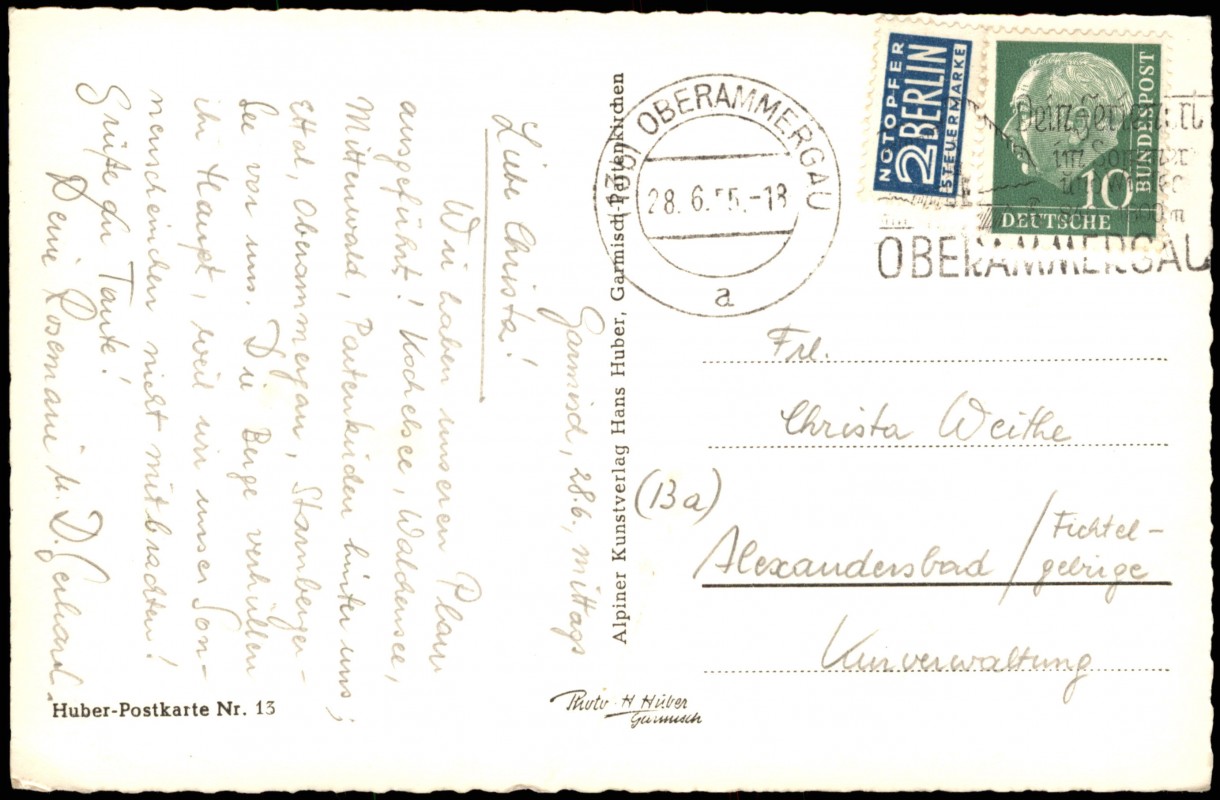 Garmisch, 28.6., mittags
Liebe Christa!
Wir haben unseren Plan
ausgeführt! Kochelsee, Walchensee,
Mittenwald, Partenkirchen hinter uns;
Ettal, Oberammergau, Starnberger-
See vor uns. Die Berge verhüllen
ihr Haupt, weil wir unser Son-
menscheinchen nicht mitbrachten!
Grüße du Tante!
Deine Rosemarie u. D. Gerhard.
Huber-Postkarte Nr. 13
Alpiner Kunstverlag Hans Huber, Garmisch-Partenkirchen
Photo H Huber
Garmisch
OBERAMMERGAU
28.6.55.-18
a
NOTOPFER
2 BERLIN
STEUERMARKE
DEUTSCHE
BUNDESPOST
10
im Sommer
OBERAMMERGAU
Frl.
Christa Weithe
(13a)
Alexandersbad / Fichtel-
gebirge
Kurverwaltung